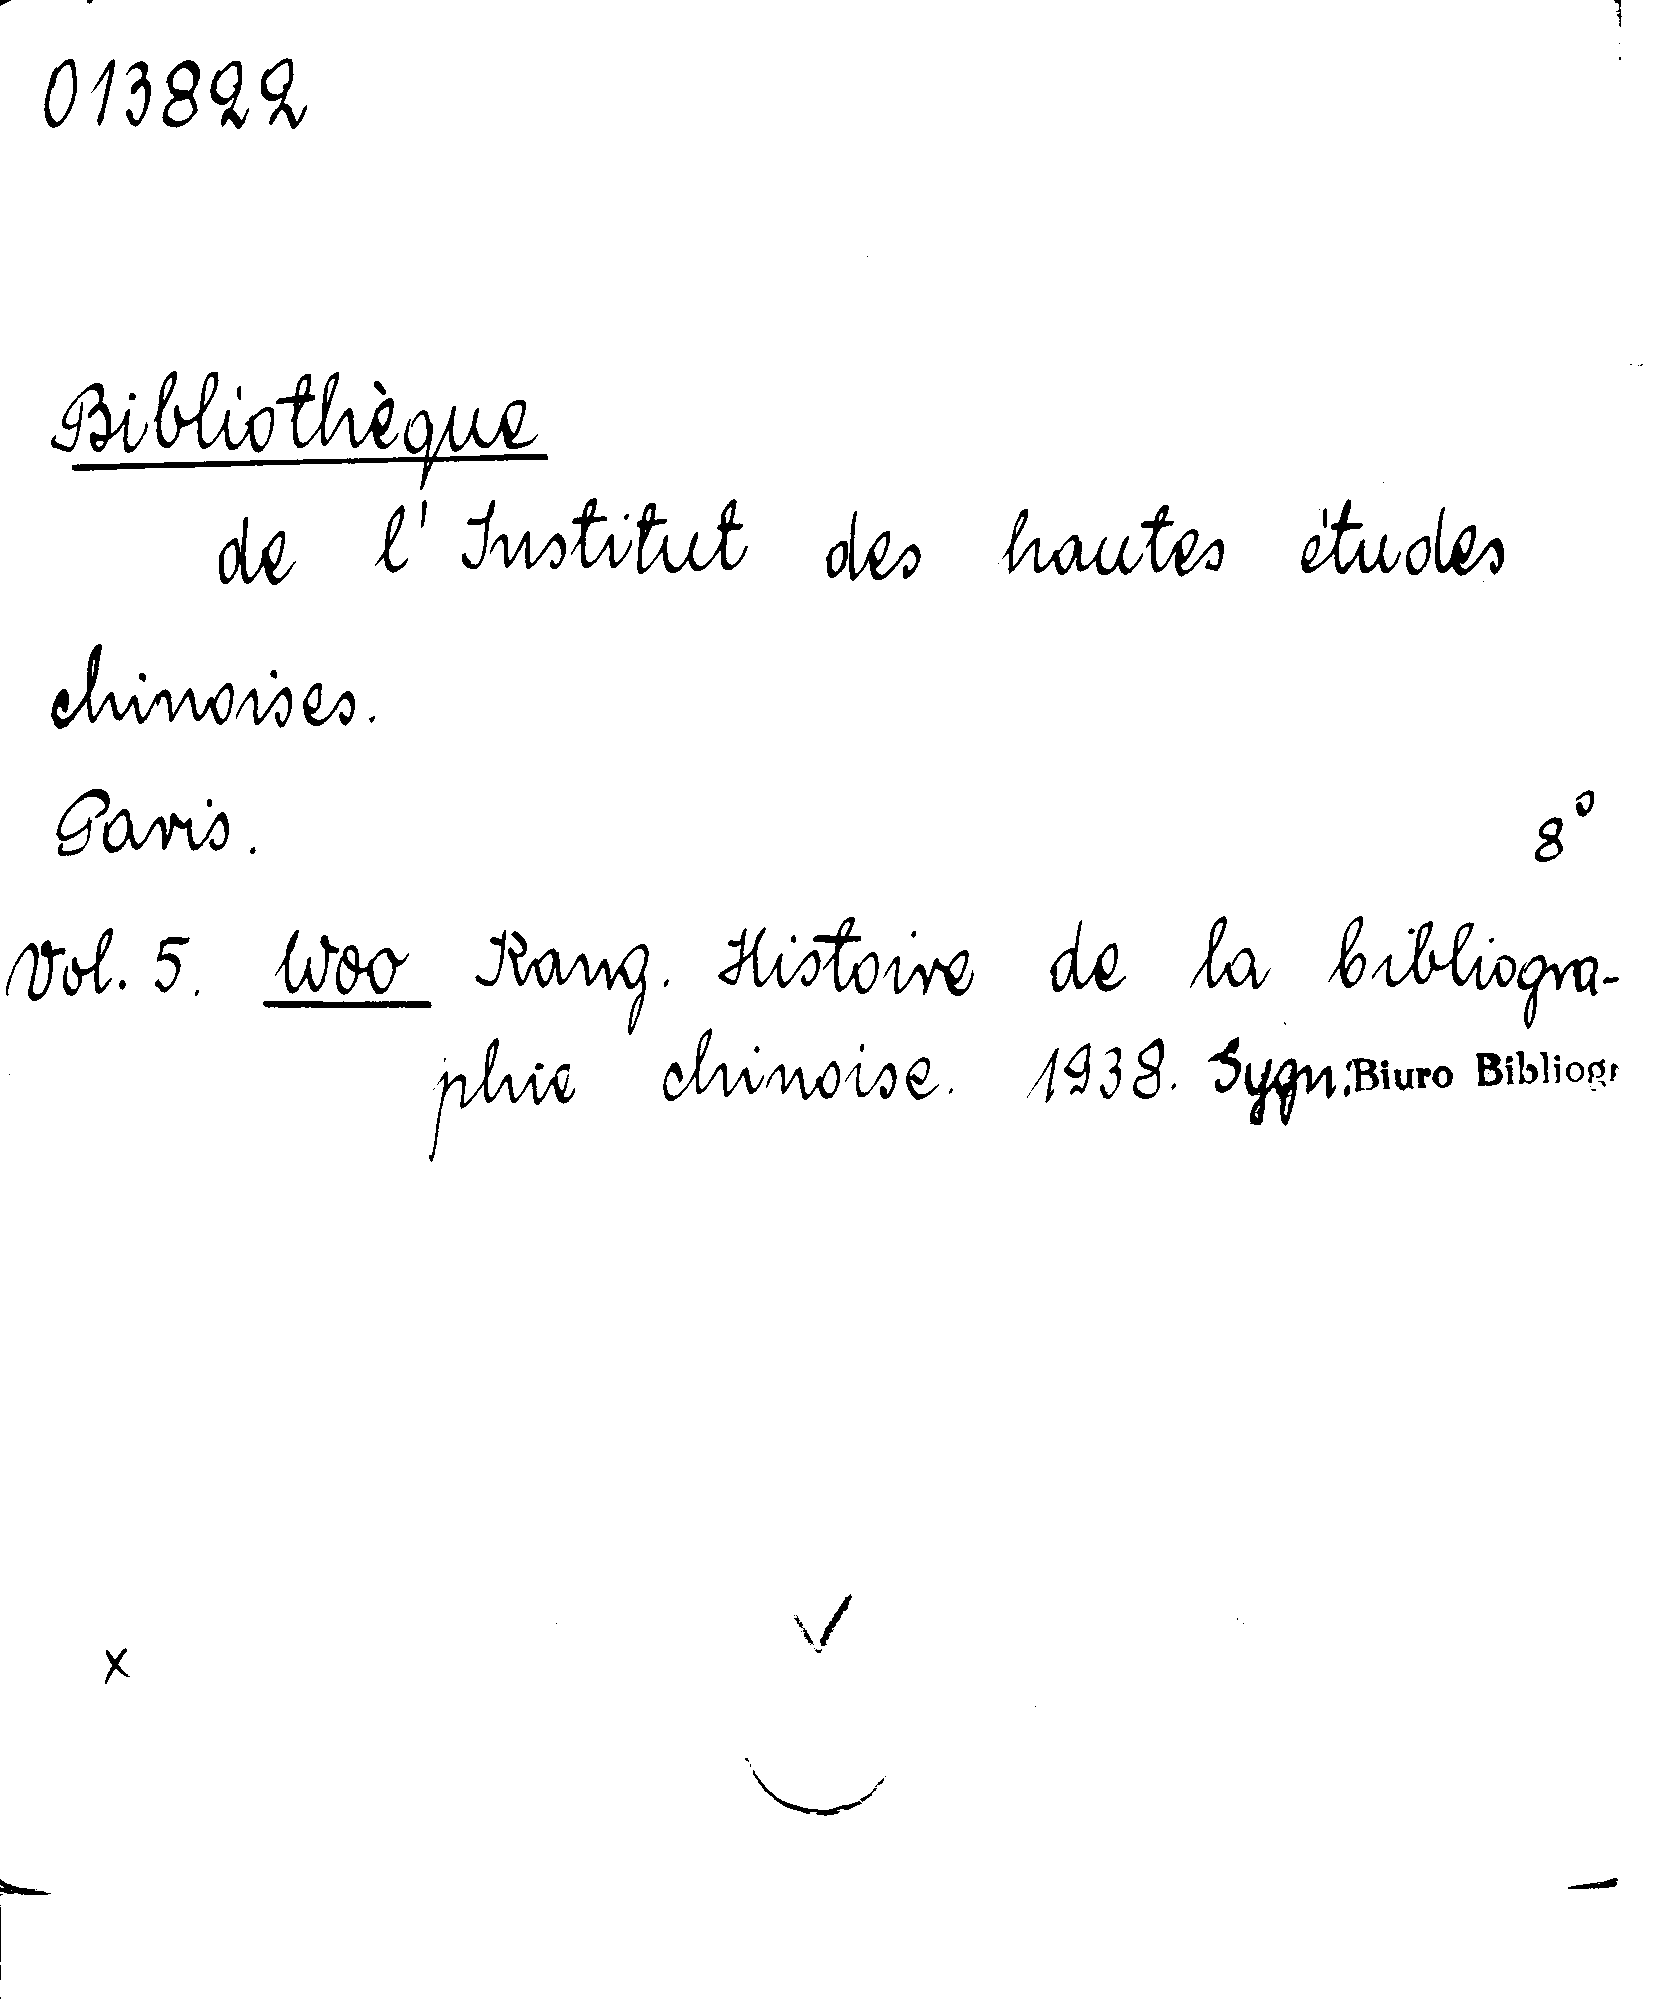 013822
Bibliothèque
de l'Institut des hautes études
chinoises.
Paris. 8°
Vol. 5. Woo Kang. Histoire de la bibliogra-
phie chinoise. 1938. Sygn. Biuro Bibliogr
x